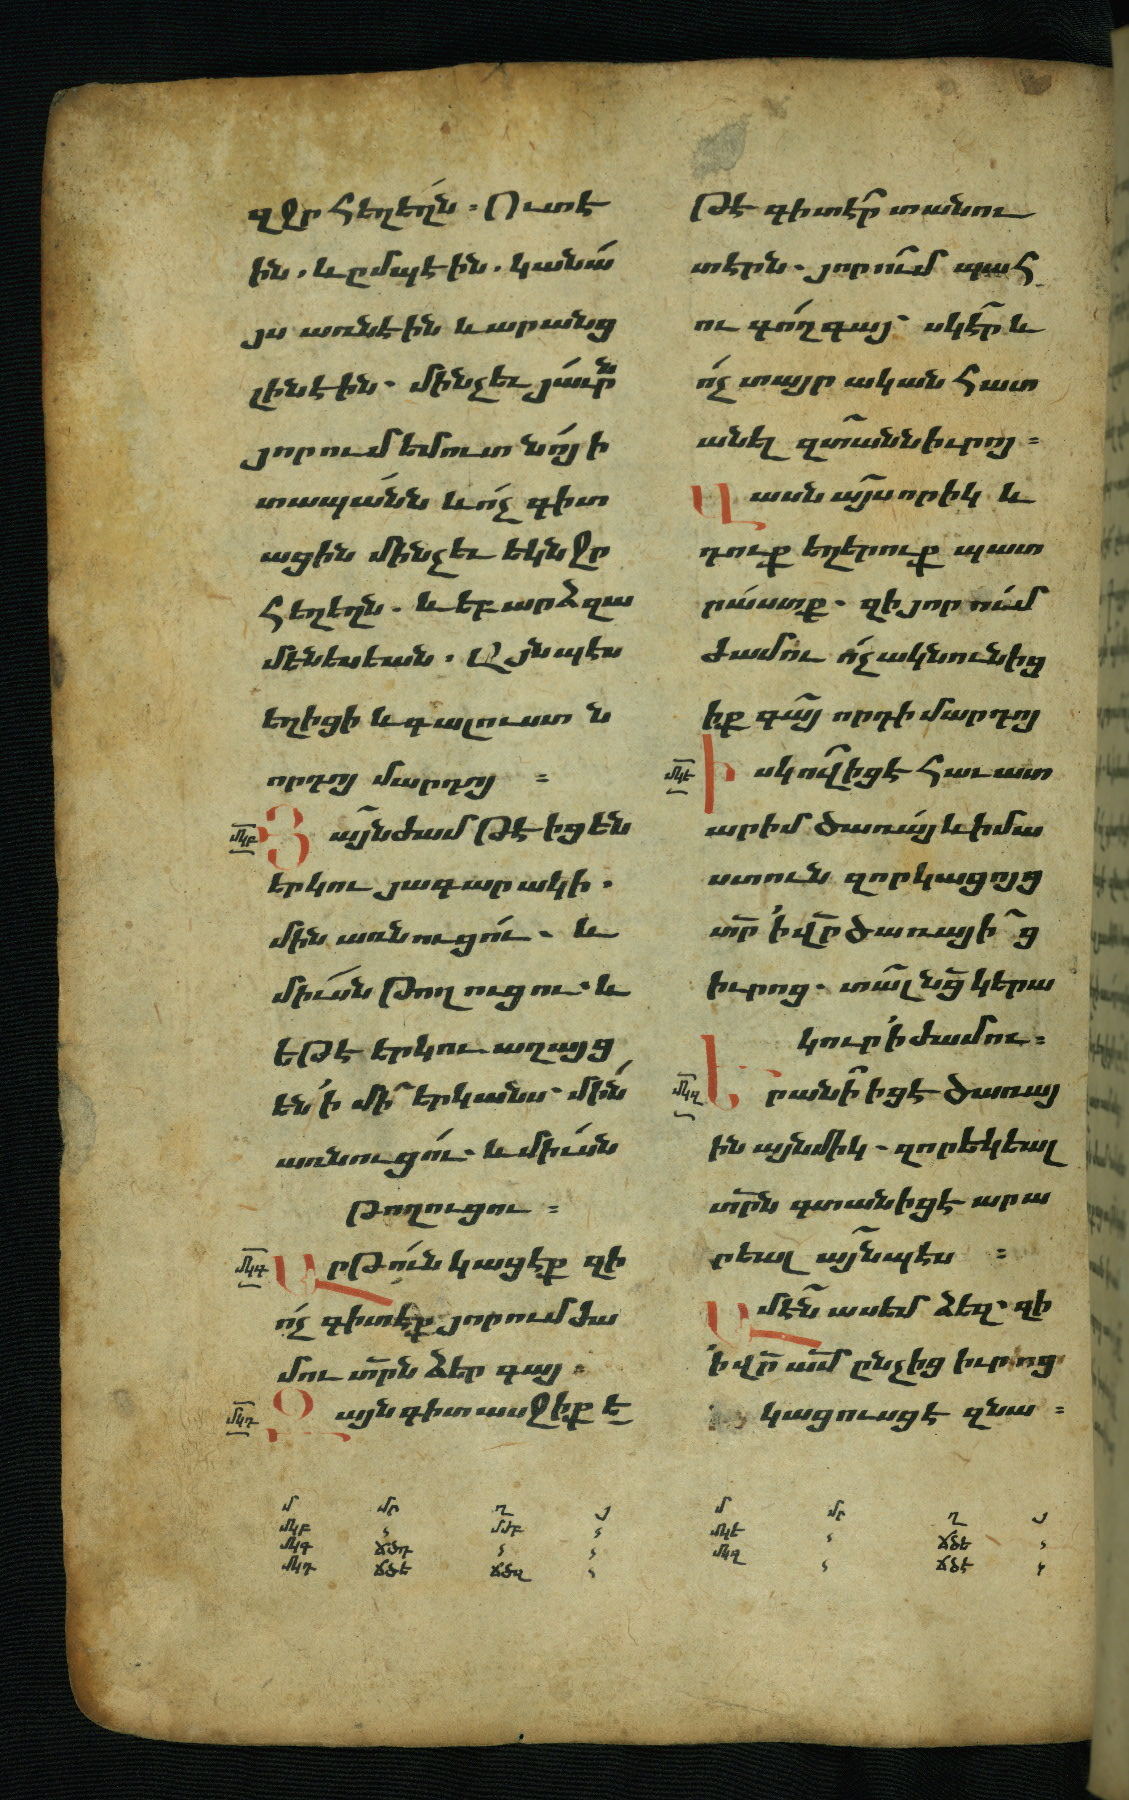 զջր հեղեղն. Ուտէ
ին. և ըմպէին. կանա
յս առնէին և արանց
լինէին. մինչև յաւրն
յորում եմուտ նոյ ի
տապանն և ոչ գիտ
ացին մինչև եկն ջր
հեղեղն. և եբարձ զա
մենեսեան. Այնպէս
եղիցի և գալուստ ն
որդոյ մարդոյ
մկբ Յայնժամ թէ իցեն
երկու յագարակի.
մին առնուցու. և
միւսն թողուցու. և
եթէ երկու աղայց
են ի մի երկանս. մին
առնուցու. և միւսն
թողուցու
մկգ Արթուն կացէք զի
ոչ գիտէք յորում ժա
մու տրն ձեր գայ
մկդ Զայն գիտասջիք է
թէ գիտէր տանու
տէրն. յորում պահ
ու գող գայ. սկէր և
ոչ տայր ական հատ
անել զտանն իւրոյ
Վասն այսորիկ և
դուք եղերուք պատ
րաստք. զի յորում
ժամու ոչ ակնունից
իք գայ որդի մարդոյ
մկե Իսկ ով իցէ հաւատ
արիմ ծառայ և իմա
ստուն զոր կացոյց
տր ի վր ծառայից
իւրոց. տալ նց կերա
կուր ի ժամու
մկզ Երանի իցէ ծառայ
ին այնմիկ. զոր եկեալ
տրն գտանիցէ արա
րեալ այնպէս
Ամէն ասեմ ձեզ. զի
ի վր ամ ընչից իւրոց
կացուսցէ զնա
մ մր ղ յ
մկբ մժբ
մկգ ճծդ
մկդ ճծե ճծզ
մ մր ղ յ
մկե ճծե
մկզ ճծէ